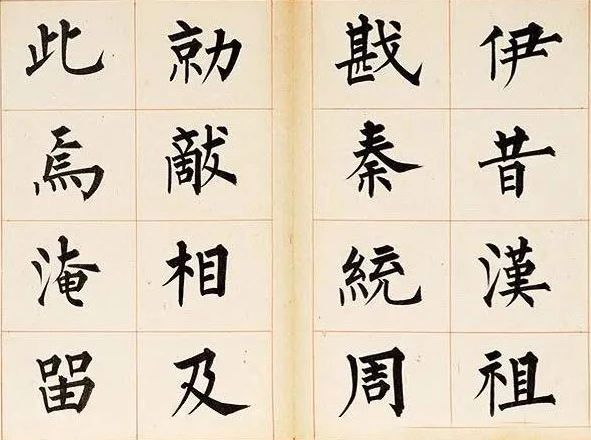 伊昔漢祖
戡秦統周
勍敵相及
此焉淹留